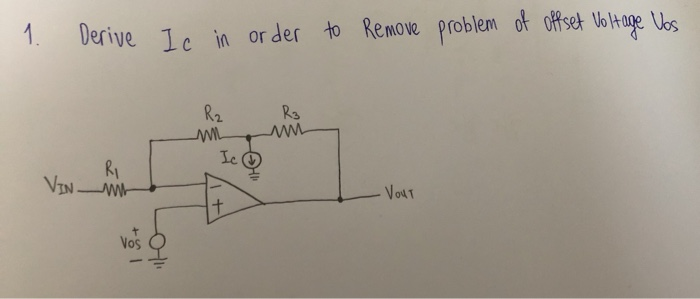 1. Derive Ic in order to Remove problem of offset Voltage Vos
R2 R3
Ic
R1
VIN
-
+
VOUT
+
Vos
-